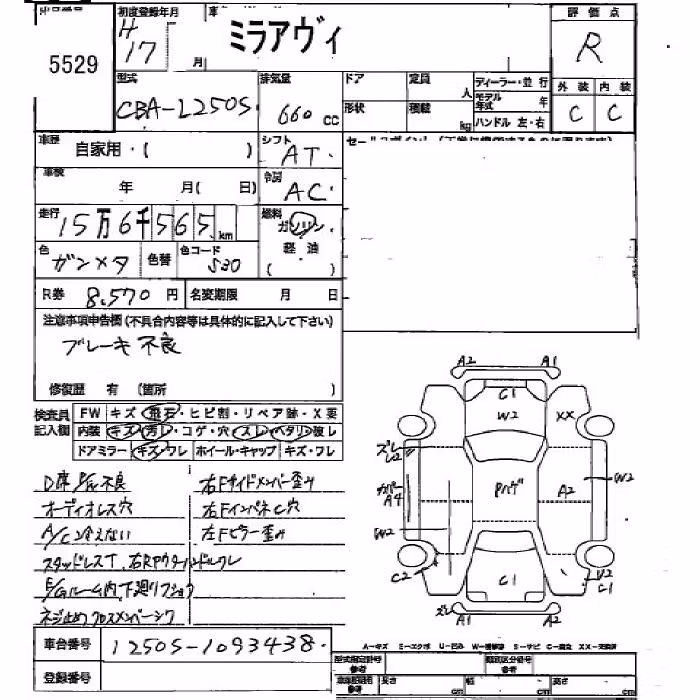 5529
初度登録年月 車
H17 月
ミラアヴィ
評価点
R
型式
CBA-L250S
排気量
660 cc
ドア
定員
人
形状
積載
kg
ディーラー・並行
モデル年式 年
ハンドル 左・右
外装 内装
C C
車歴
自家用・( )
シフト
AT
車検
年 月( 日)
冷房
AC
走行
15万6千565km
燃料
ガソリン
軽油
( )
色
ガンメタ
色替
色コード
S30
R券 8,570 円
名変期限 月 日
注意事項申告欄(不具合内容等は具体的に記入して下さい)
ブレーキ不良
修復歴 有 (箇所 )
検査員記入欄
FW キズ・飛石・ヒビ割・リペア跡・X要
内装 キズ・汚レ・コゲ・穴・スレ・ヘタリ・破レ
ドアミラー キズ・ワレ ホイール・キャップ キズ・フレ
D席P/W不良
オーディオレス穴
A/C冷えない
スタッドレスT、右Rアウターハンドルワレ
E/Gルーム内下廻りフショク
ネジ止めクロスメンバーシワク
右Fサイドメンバー歪み
右FインパネC穴
左Fピラー歪み
車台番号 L250S-1093438
登録番号
A2 A1
C1
W2
XX
ズレ
U2
カバー
A4
Pハゲ
A2
W2
W2
C2
C1
U2
C1
ズレ
A1 A2
A-キズ E-エクボ U-凹み W-補修跡 S-サビ C-腐食 XX-交換済
型式指定番号
参考
類別区分番号
参考
長さ cm
幅 cm
高さ cm